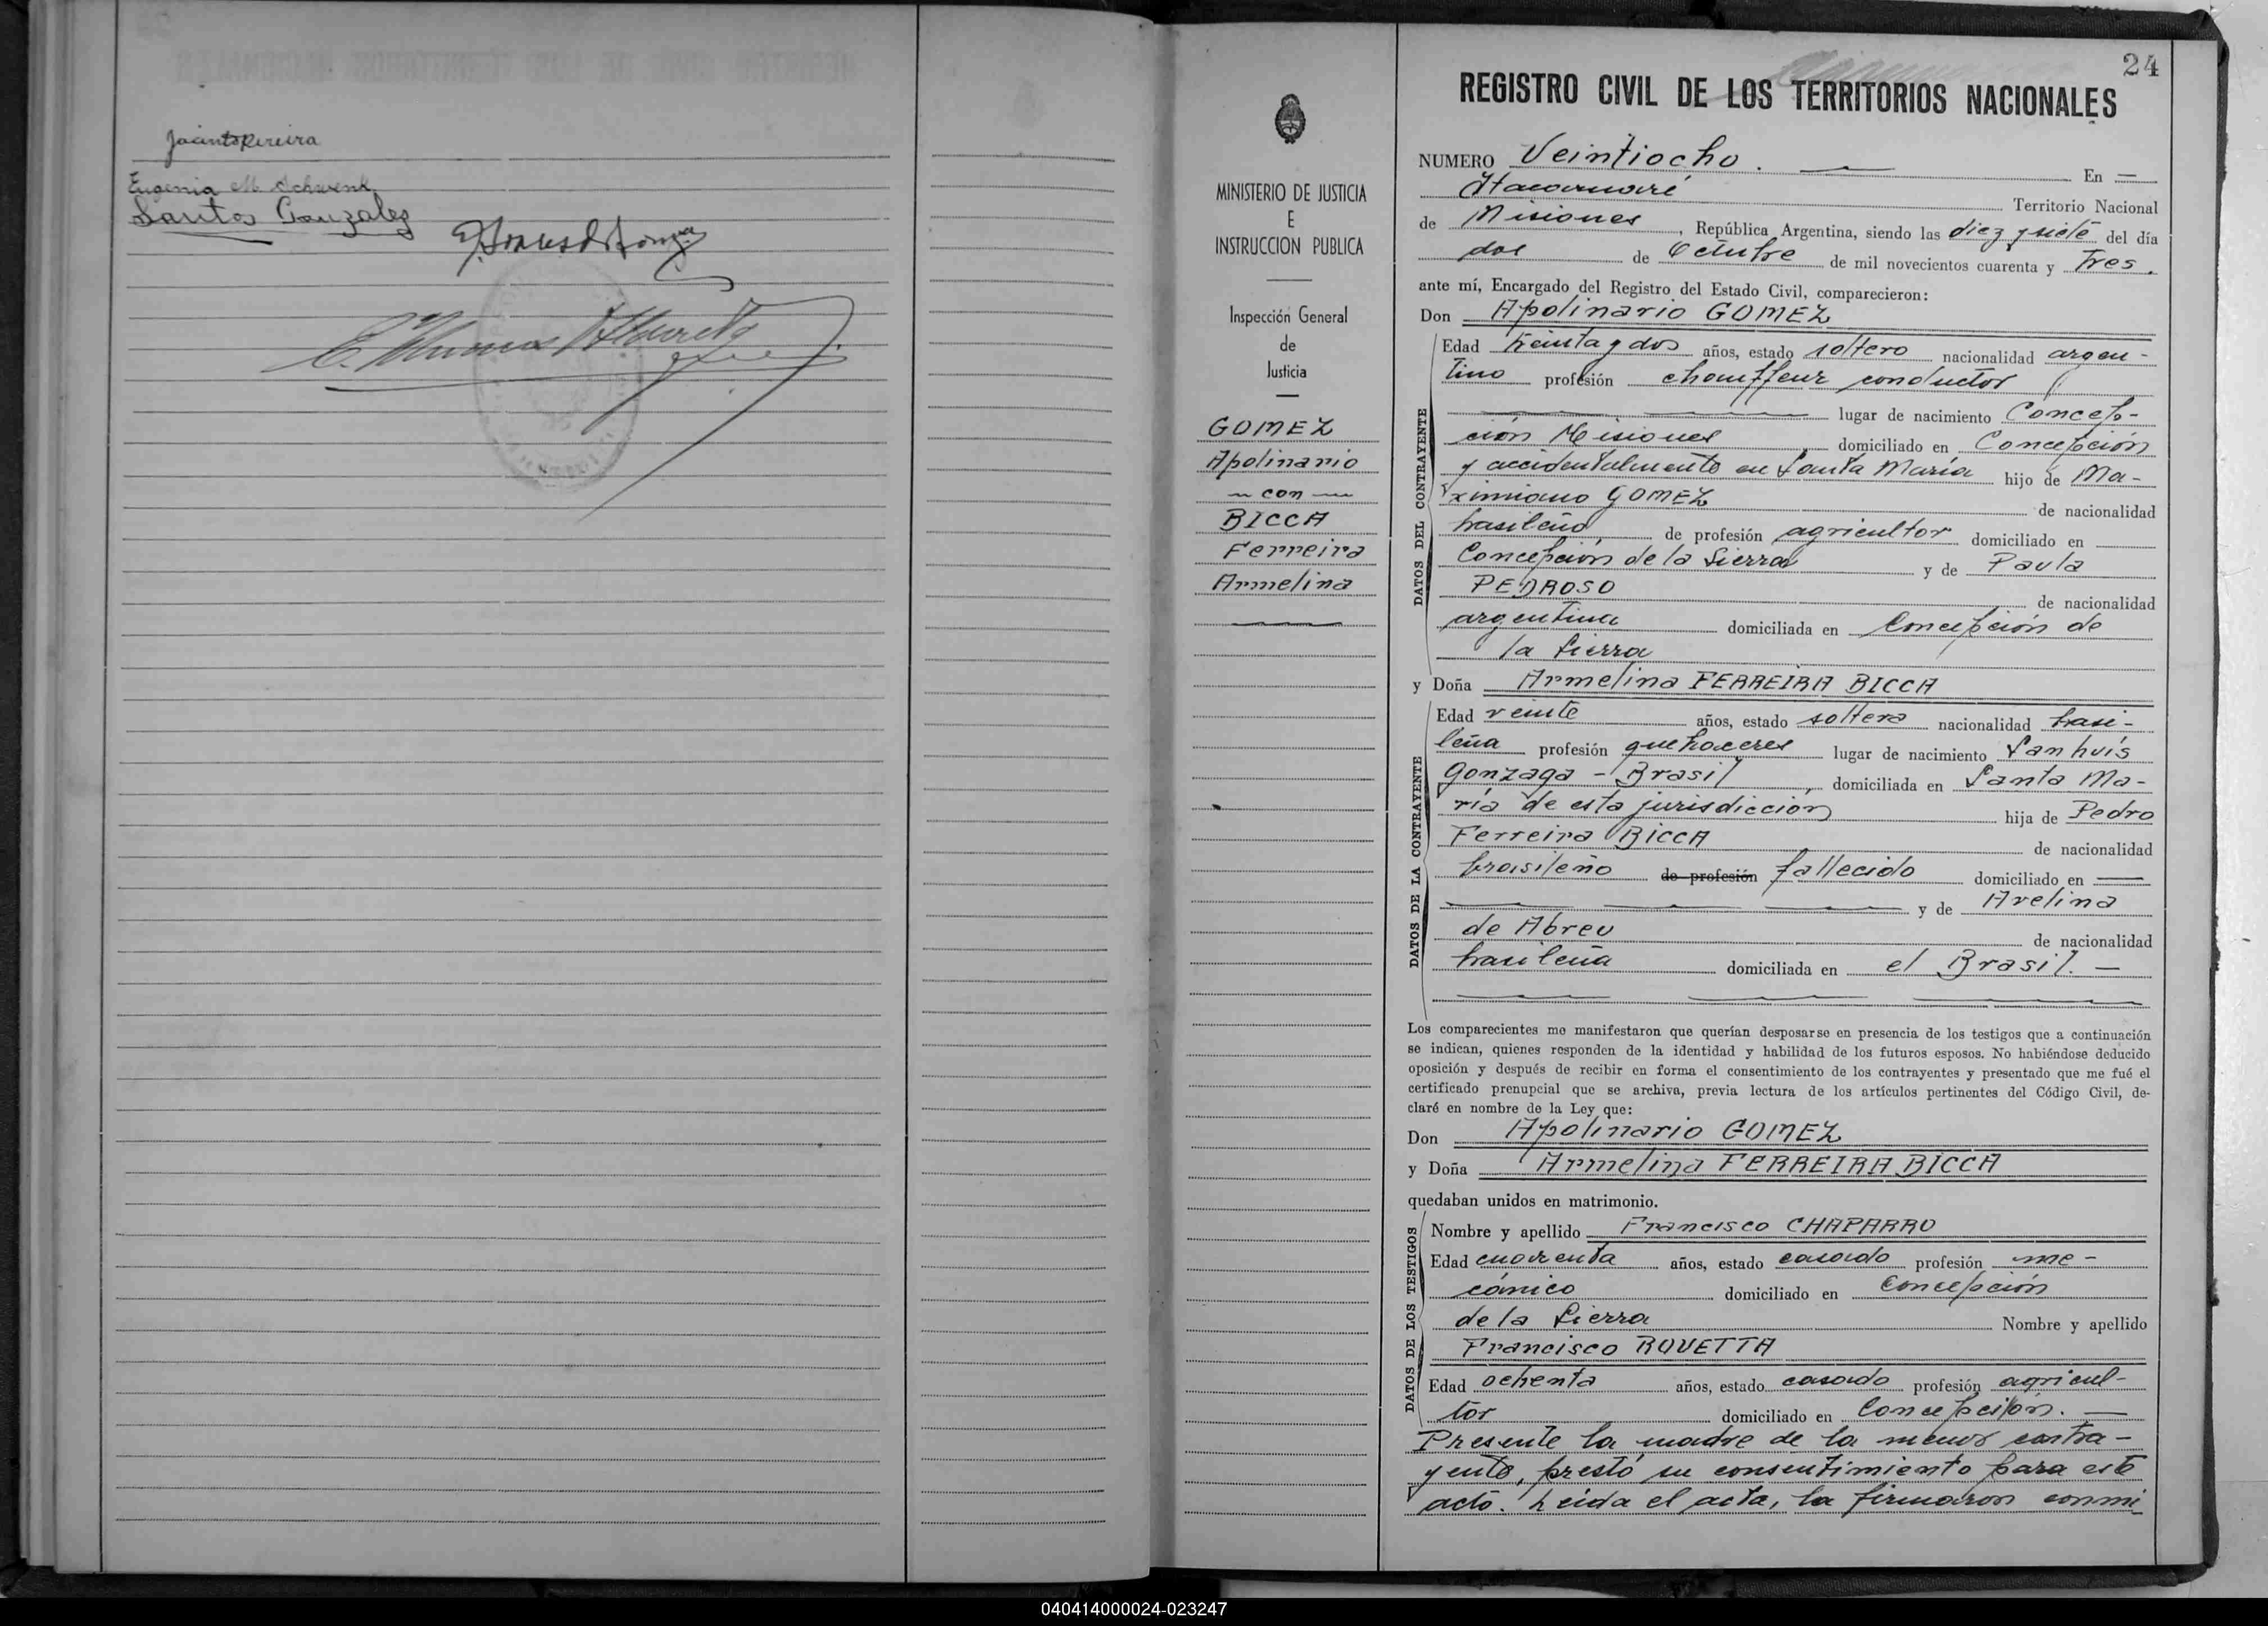 Jacinto Pereira
Eugenia M. Schwenk
Santos Gonzalez
24
REGISTRO CIVIL DE LOS TERRITORIOS NACIONALES
MINISTERIO DE JUSTICIA
E
INSTRUCCION PUBLICA
Inspección General
de
Justicia
GOMEZ
Apolinario
con
BICCA
Ferreira
Armelina
NUMERO Veintiocho. En
Itacaruaré Territorio Nacional
de Misiones, República Argentina, siendo las diez y siete del día
dos de Octubre de mil novecientos cuarenta y tres.
ante mí, Encargado del Registro del Estado Civil, comparecieron:
Don Apolinario GOMEZ
DATOS DEL CONTRAYENTE
Edad treinta y dos años, estado soltero nacionalidad argen-
tino profesión chouffeur conductor
lugar de nacimiento Concep-
ción Misiones domiciliado en Concepción
y accidentalmente en Santa María hijo de Ma-
ximiano GOMEZ de nacionalidad
brasileño de profesión agricultor domiciliado en
Concepción de la Sierra y de Paula
PEDROSO de nacionalidad
argentina domiciliada en Concepción de
la Sierra
y Doña Armelina FERREIRA BICCA
DATOS DE LA CONTRAYENTE
Edad veinte años, estado soltera nacionalidad brasi-
leña profesión quehaceres lugar de nacimiento San Luis
Gonzaga - Brasil, domiciliada en Santa Ma-
ría de esta jurisdicción hija de Pedro
Ferreira BICCA de nacionalidad
brasileño de profesión fallecido domiciliado en
y de Avelina
de Abreu de nacionalidad
brasileña domiciliada en el Brasil.
Los comparecientes me manifestaron que querían desposarse en presencia de los testigos que a continuación
se indican, quienes responden de la identidad y habilidad de los futuros esposos. No habiéndose deducido
oposición y después de recibir en forma el consentimiento de los contrayentes y presentado que me fué el
certificado prenupcial que se archiva, previa lectura de los artículos pertinentes del Código Civil, de-
claré en nombre de la Ley que:
Don Apolinario GOMEZ
y Doña Armelina FERREIRA BICCA
quedaban unidos en matrimonio.
DATOS DE LOS TESTIGOS
Nombre y apellido Francisco CHAPARRO
Edad cuarenta años, estado casado profesión me-
cánico domiciliado en Concepción
de la Sierra Nombre y apellido
Francisco ROVETTA
Edad ochenta años, estado casado profesión agricul-
tor domiciliado en Concepción.
Presente la madre de la menor contra-
yente, prestó su consentimiento para este
acto. Leída el acta, la firmaron conmi
040414000024-023247